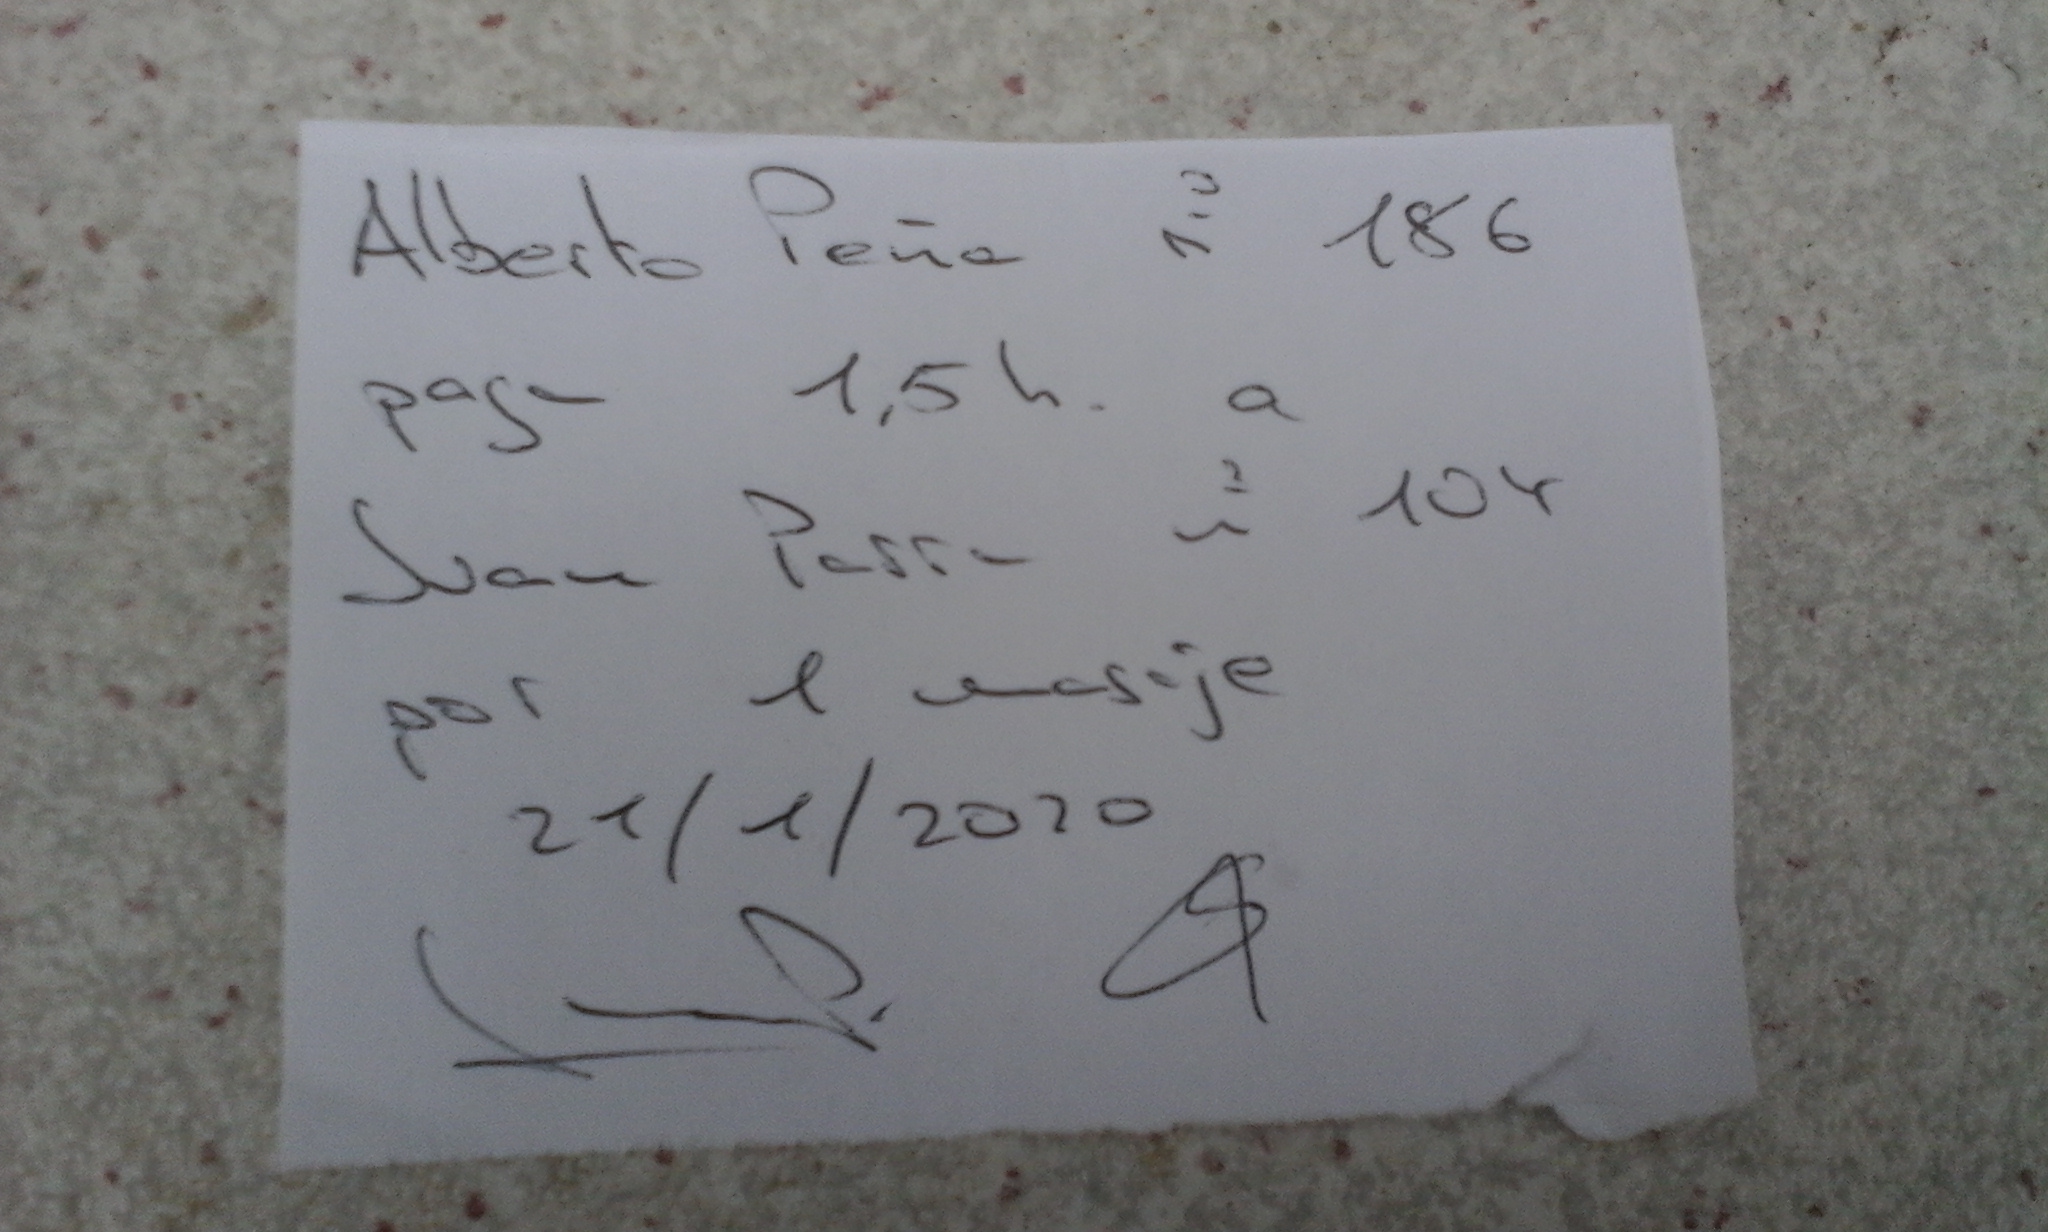 Alberto Peña nº 186
paga 1,5 h. a
Ivan Parra nº 104
por 1 masaje
21/1/2020